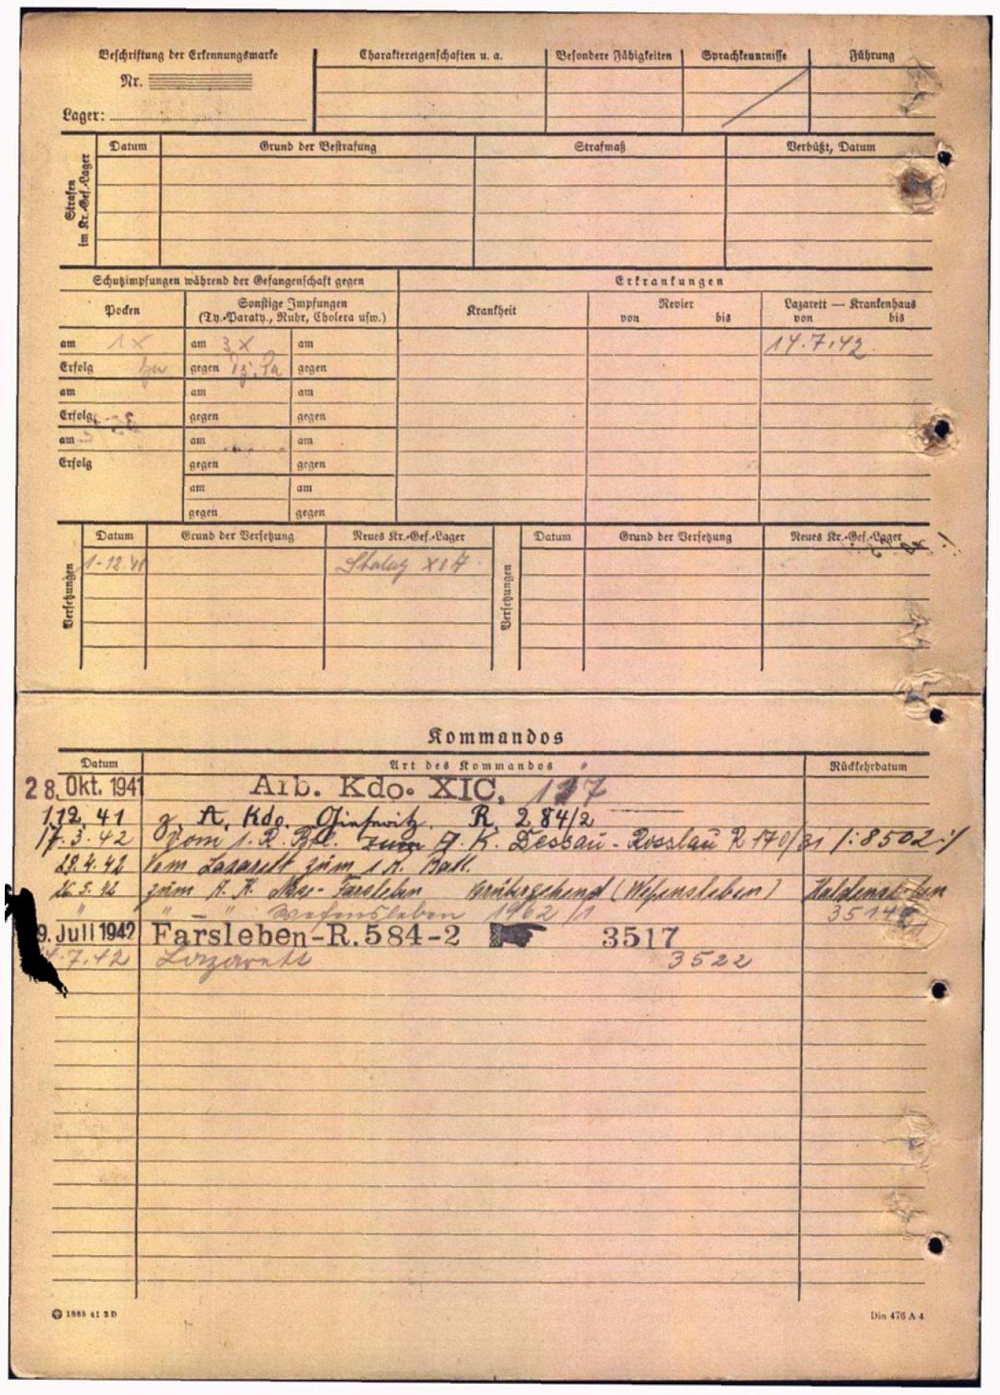 Beschriftung der Erkennungsmarke
Nr.
Lager:
Charaktereigenschaften u. a.
Besondere Fähigkeiten
Sprachkenntnisse
Führung
Strafen im Kr.-Gef.-Lager
Datum
Grund der Bestrafung
Strafmaß
Verbüßt, Datum
Schutzimpfungen während der Gefangenschaft gegen
Erkrankungen
Pocken
Sonstige Impfungen
(Ty.-Paraty., Ruhr, Cholera usw.)
Krankheit
Revier
von bis
Lazarett — Krankenhaus
von bis
am 1 X am 3 X am
14.7.42
Erfolg gegen gegen
am am am
Erfolg gegen gegen
am am am
Erfolg gegen gegen
am am
gegen gegen
Versetzungen
Datum
Grund der Versetzung
Neues Kr.-Gef.-Lager
Versetzungen
Datum
Grund der Versetzung
Neues Kr.-Gef.-Lager
1.12.41 Stalag XI A
Kommandos
Datum
Art des Kommandos
Rückkehrdatum
28. Okt. 1941 Arb. Kdo. XIC, 137
1.12.41 z. A. Kdo. R. 284/2
17.3.42 vom zum A. K. Dessau - Rosslau R 170/31 /:8502:/
28.4.42 Vom Lazarett zum
26.5.42 zum A. K. Farsleben vorübergehend (Wefensleben)
" " — " Wefensleben 1962/1
9. Juli 1942 Farsleben-R.584-2 3517
4.7.42 Lazarett 3522
1885 41 2 D
Din 476 A 4